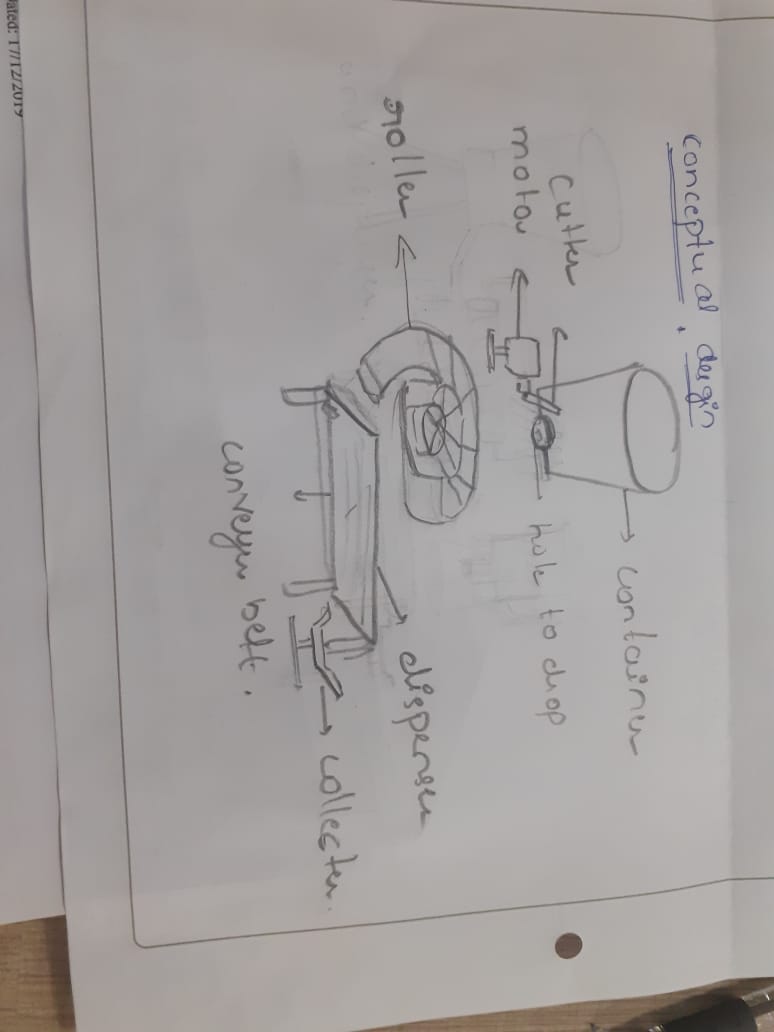 conceptual design
container
cutter
motor
hole to drop
roller
dispenser
collecter.
conveyer belt.
ated: 17/12/2019